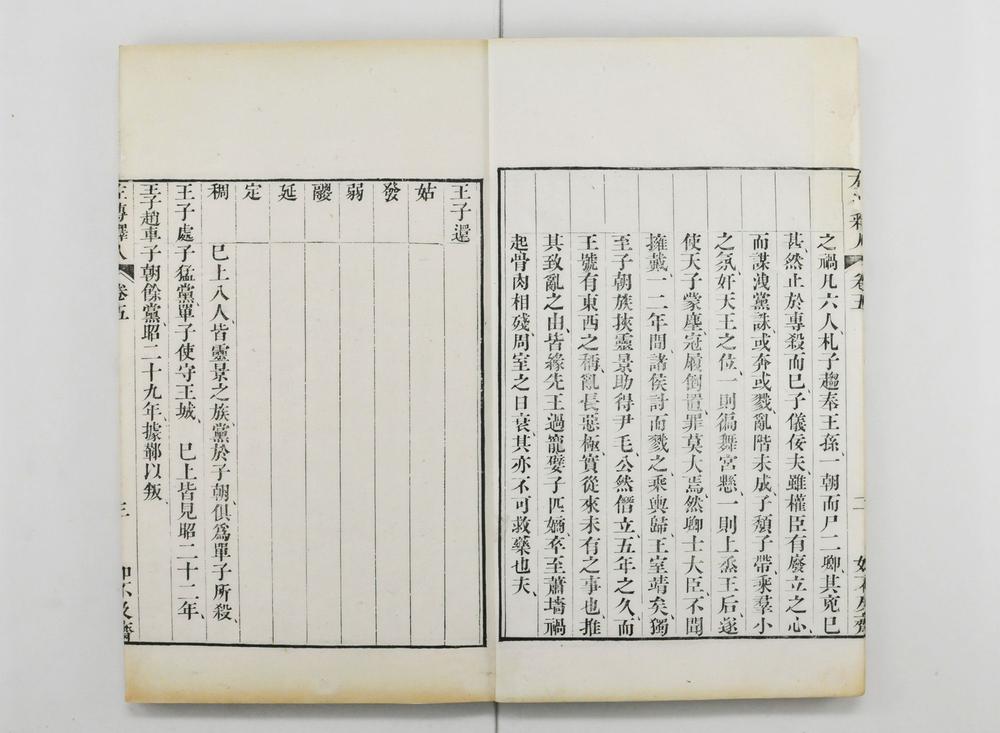 之禍凡六人札子趨奉王孫一朝而尸二卿其寃已
甚然止於專殺而已子儀佞夫雖權臣有廢立之心
而謀洩黨誅或奔或戮亂階未成子頹子帶乘羣小
之氛奸天王之位一則徧舞宮懸一則上烝王后遂
使天子蒙塵冠履倒置罪莫大焉然卿士大臣不聞
擁戴一二年間諸侯討而戮之乘輿歸王室靖矣獨
至子朝族挾靈景助得尹毛公然僭立五年之久而
王號有東西之稱亂長惡極實從來未有之事也推
其致亂之由皆緣先王過寵嬖子匹嫡卒至蕭墻禍
起骨肉相殘周室之日衰其亦不可救藥也夫
卷五
二
王子還
姑
發
弱
鬷
延
定
稠
已上八人皆靈景之族黨於子朝俱爲單子所殺
王子處子猛黨單子使守王城 已上皆見昭二十二年
王子趙車子朝餘黨昭二十九年據鄻以叛
左傳釋人
卷五
三
即不及齋